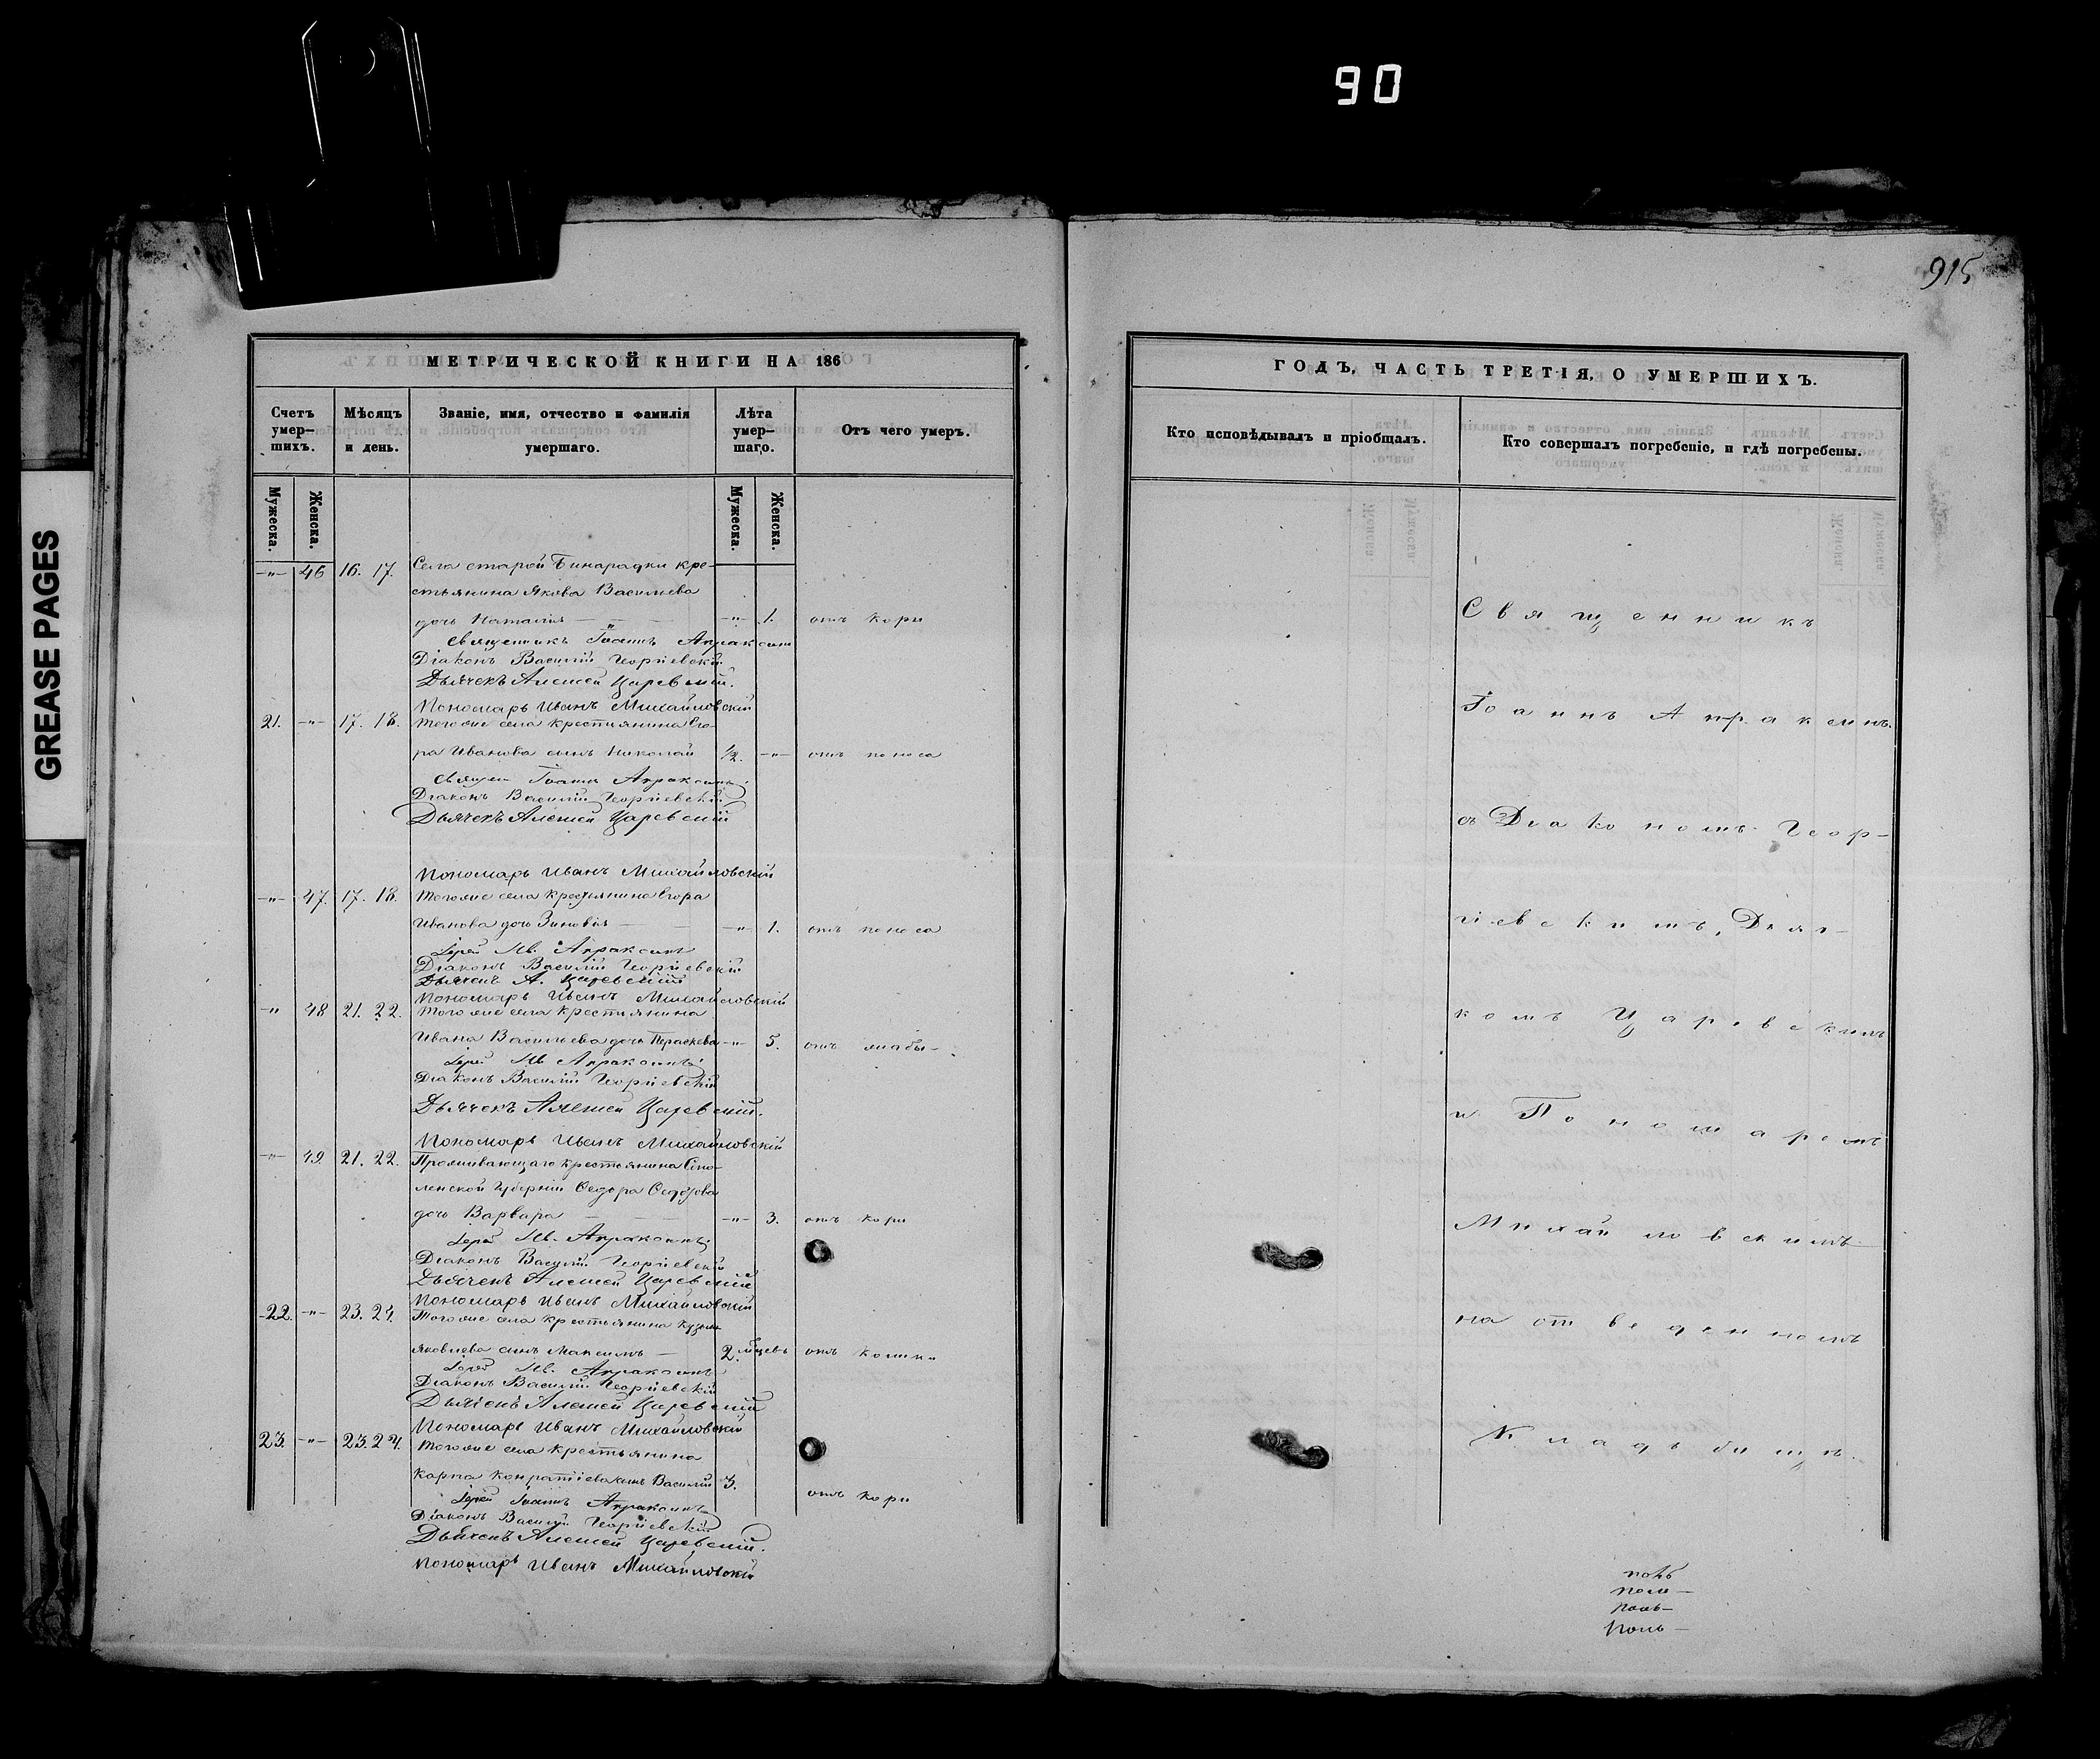 90
915
GREASE PAGES
МЕТРИЧЕСКОЙ КНИГИ НА 186
Счетъ умер-шихъ.
Мѣсяцъ и день.
Званіе, имя, отчество и фамилія умершаго.
Лѣта умер-шаго.
Отъ чего умеръ.
Мужеска.
Женска.
Мужеска.
Женска.
-"- 46 16. 17. Села старой Бинарадки кре-
стьянина Якова Васильева
дочь Наталія -"- 1. отъ кори
Священникъ Іоаннъ Апраксинъ
Діаконъ Василій Георгіевскій
Дьячекъ Алексей Царевскій.
Пономарь Иванъ Михайловскій
21. -"- 17. 18. Тогоже села крестьянина Его-
ра Иванова сынъ Николай 1/2. -"- отъ поноса
Священ Іоаннъ Апраксинъ
Діаконъ Василій Георгіевскій
Дьячекъ Алексей Царевскій
Пономарь Иванъ Михайловскій
-"- 47. 17. 18. Тогоже села крестьянина Егора
Иванова дочь Зиновія -"- 1. отъ поноса
Іерей Ів. Апраксинъ
Діаконъ Василій Георгіевскій
Дьячекъ А. Царевскій
Пономарь Иванъ Михайловскій
" 48 21. 22. Тогоже села крестьянина
Ивана Васильева дочь Параскева -"- 5. отъ жабы-
Іерей Ів. Апраксинъ
Діаконъ Василій Георгіевскій
Дьячекъ Алексей Царевскій.
Пономарь Иванъ Михайловскій
-"- 49. 21. 22. Проживающаго крестьянина Смо-
ленской губерніи Федора Федорова
дочь Варвара -"- 3. отъ кори
Іерей Ів. Апраксинъ
Діаконъ Василій Георгіевскій
Дьячекъ Алексей Царевскій
Пономарь Иванъ Михайловскій
22. -"- 23. 24. Тогоже села крестьянина Кузмы
Яковлева сынъ Максимъ - 2. отъ
Іерей Ів. Апраксинъ
Діаконъ Василій Георгіевскій
Дьячекъ Алексей Царевскій
Пономарь Иванъ Михайловскій
23. -"- 23. 24. Тогоже села крестьянина
Карпа Конратіева сынъ Василій 3. отъ кори
Іерей Іоаннъ Апраксинъ
Діаконъ Василій Георгіевскій
Дьячекъ Алексей Царевскій.
Пономарь Иванъ Михайловскій
ГОДЪ, ЧАСТЬ ТРЕТІЯ, О УМЕРШИХЪ.
Кто исповѣдывалъ и пріобщалъ.
Кто совершалъ погребеніе, и гдѣ погребены.
Священникъ
Іоаннъ Апраксинъ
съ Діакономъ Геор-
гіевскимъ, Дьяч-
комъ Царевскимъ
и Пономаремъ
Михайловскимъ
на отведенномъ
Кладьбищѣ.